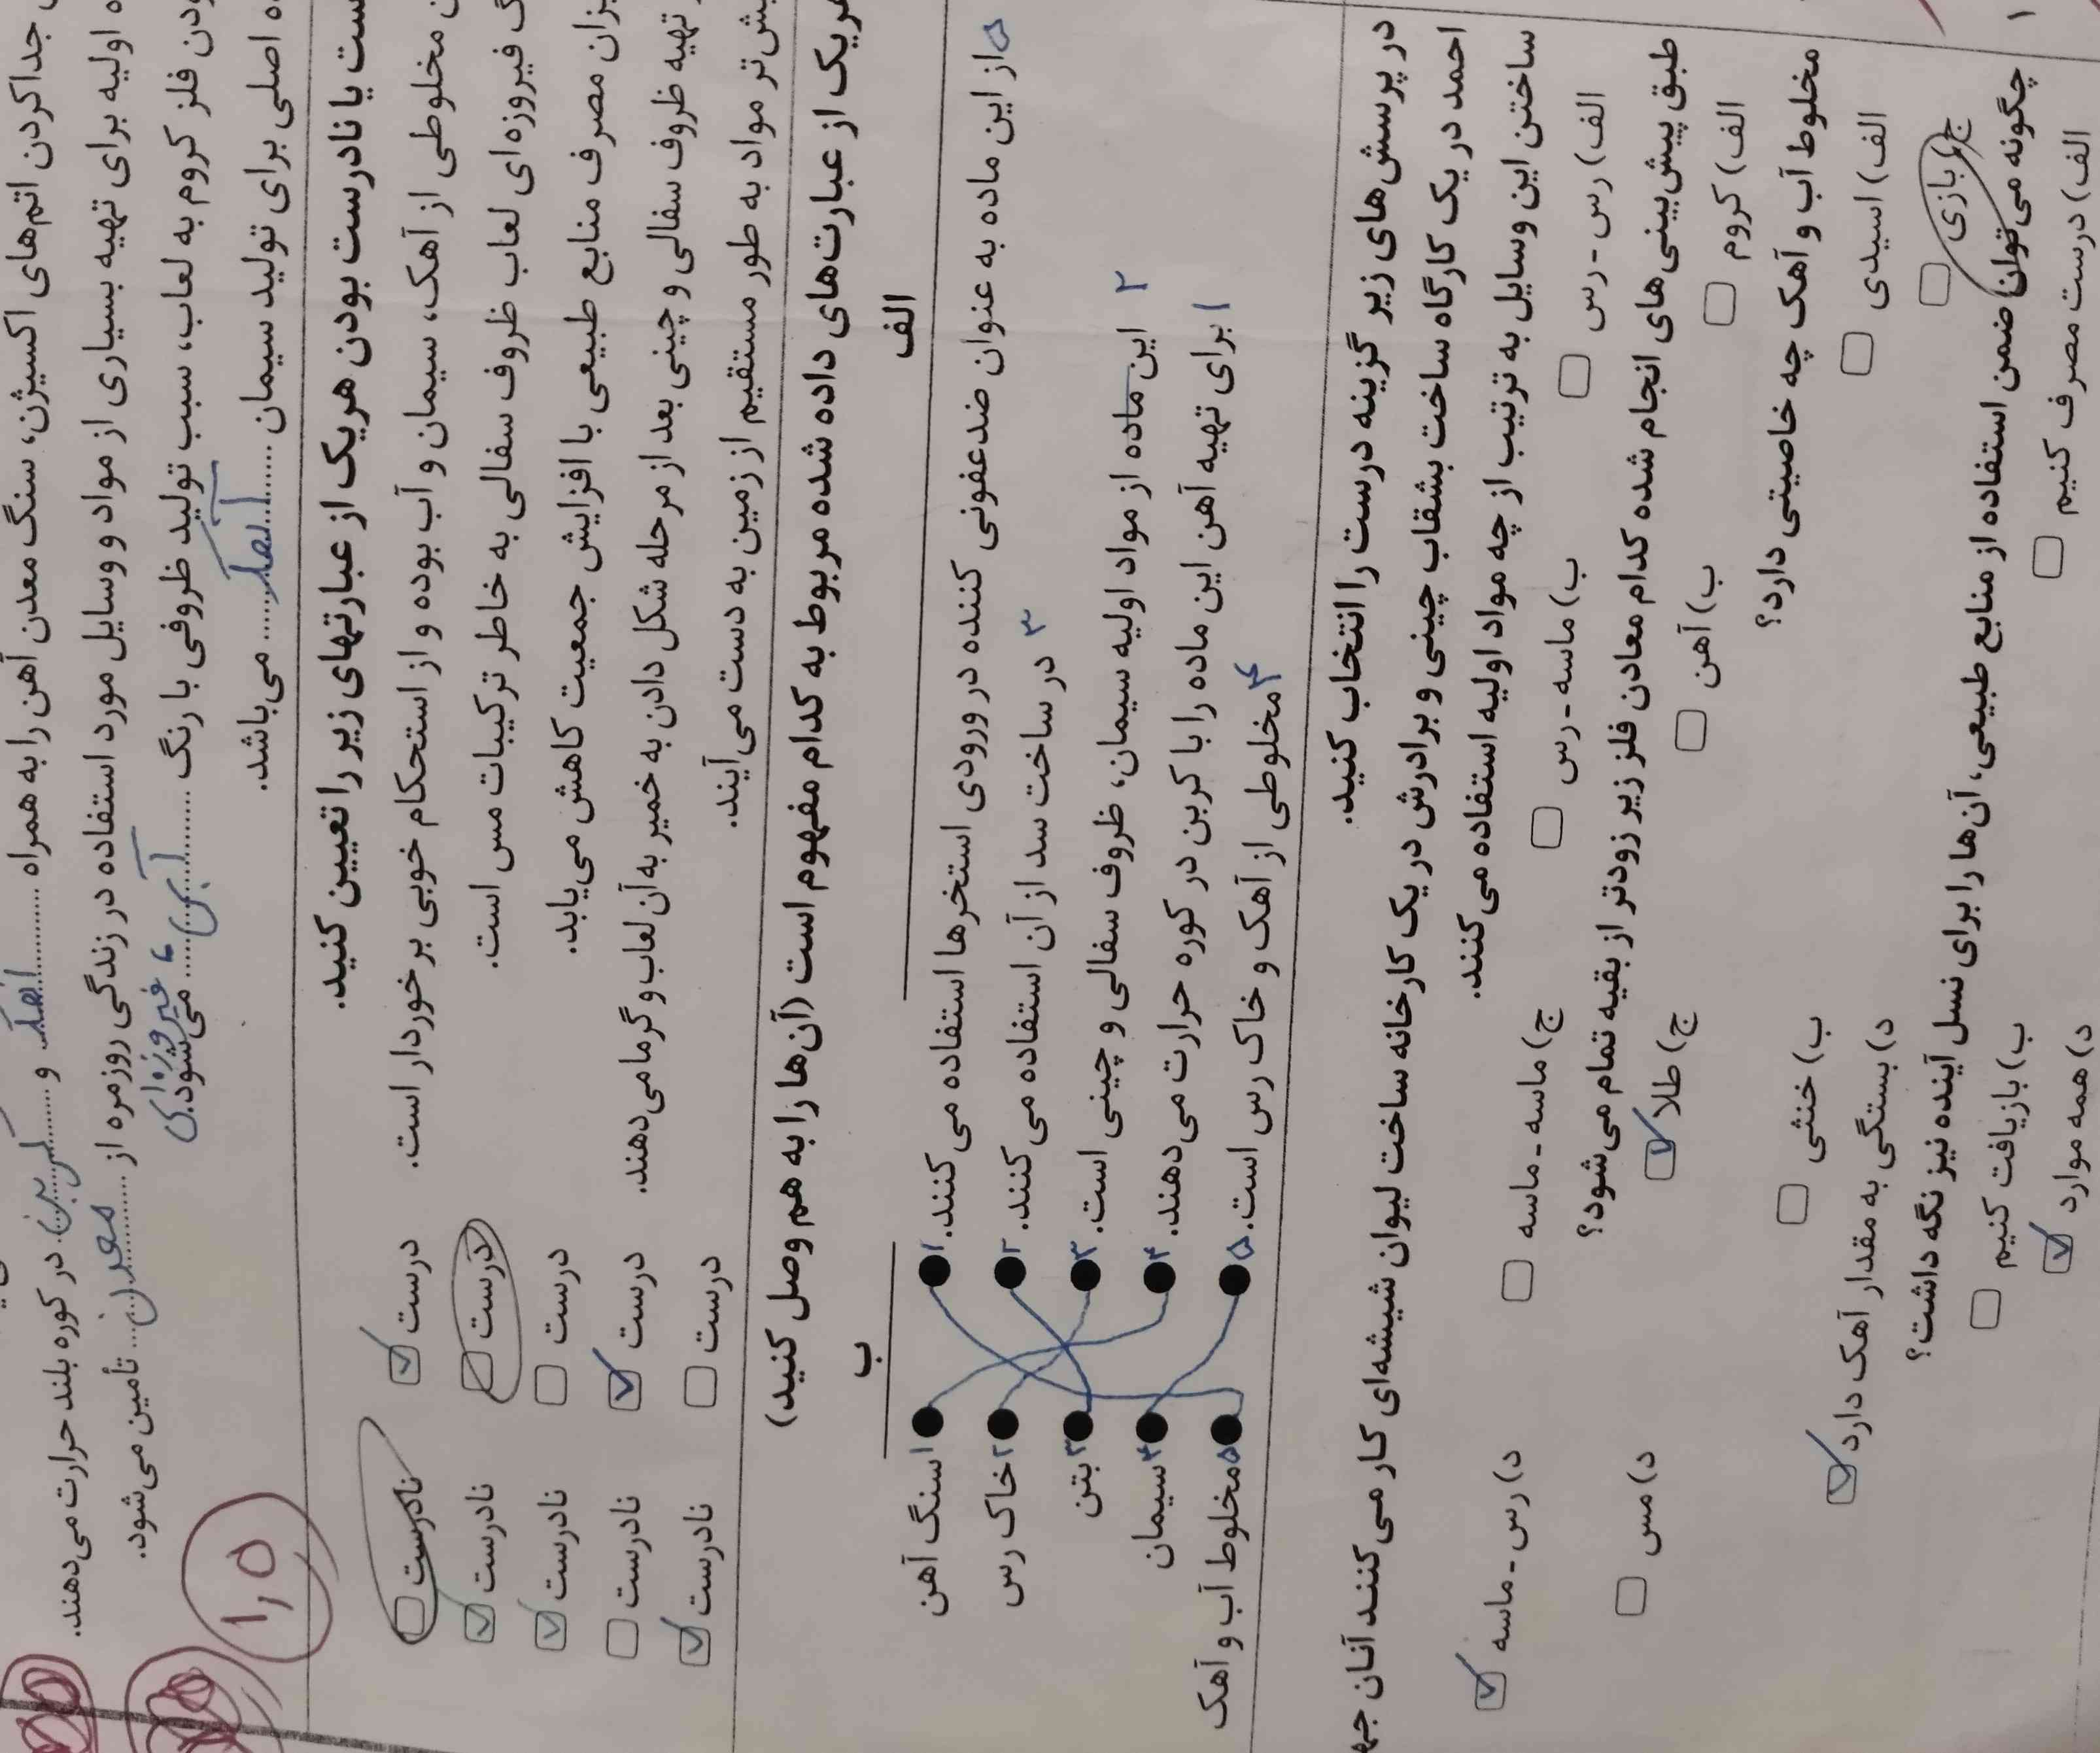 جدا کردن اتم‌های اکسیژن، سنگ معدن آهن را به همراه ...آهک... و ...کربن... در کوره بلند حرارت می‌دهند.
اولیه برای تهیه بسیاری از مواد و وسایل مورد استفاده در زندگی روزمره از ...معدن... تأمین می‌شود.
فلز کروم به لعاب، سبب تولید ظروفی با رنگ ...آبی... می‌شود.
فیروزه‌ای
اصلی برای تولید سیمان ...آهک... می‌باشد.
۱,۵
یا نادرست بودن هریک از عبارتهای زیر را تعیین کنید.
مخلوطی از آهک، سیمان و آب بوده و از استحکام خوبی برخوردار است. درست نادرست
فیروزه‌ای لعاب ظروف سفالی به خاطر ترکیبات مس است. درست نادرست
مصرف منابع طبیعی با افزایش جمعیت کاهش می‌یابد. درست نادرست
تهیه ظروف سفالی و چینی بعد از مرحله شکل دادن به خمیر به آن لعاب و گرما می‌دهند. درست نادرست
مواد به طور مستقیم از زمین به دست می‌آیند. درست نادرست
از عبارت‌های داده شده مربوط به کدام مفهوم است (آن‌ها را به هم وصل کنید)
الف ب
۵ از این ماده به عنوان ضدعفونی کننده در ورودی استخرها استفاده می‌کنند. ۱ ۱ سنگ آهن
۳ در ساخت سد از آن استفاده می‌کنند. ۲ ۲ خاک رس
۲ این ماده از مواد اولیه سیمان، ظروف سفالی و چینی است. ۳ ۳ بتن
۱ برای تهیه آهن این ماده را با کربن در کوره حرارت می‌دهند. ۴ ۴ سیمان
۴ مخلوطی از آهک و خاک رس است. ۵ ۵ مخلوط آب و آهک
در پرسش‌های زیر گزینه درست را انتخاب کنید.
احمد در یک کارگاه ساخت بشقاب چینی و برادرش در یک کارخانه ساخت لیوان شیشه‌ای کار می‌کنند آنان
ساختن این وسایل به ترتیب از چه مواد اولیه استفاده می‌کنند.
الف) رس - رس ب) ماسه - رس ج) ماسه - ماسه د) رس - ماسه
طبق پیش‌بینی‌های انجام شده کدام معادن فلز زیر زودتر از بقیه تمام می‌شود؟
الف) کروم ب) آهن ج) طلا د) مس
مخلوط آب و آهک چه خاصیتی دارد؟
الف) اسیدی ب) خنثی
ج) بازی د) بستگی به مقدار آهک دارد
چگونه می‌توان ضمن استفاده از منابع طبیعی، آن‌ها را برای نسل آینده نیز نگه داشت؟
الف) درست مصرف کنیم ب) بازیافت کنیم
د) همه موارد